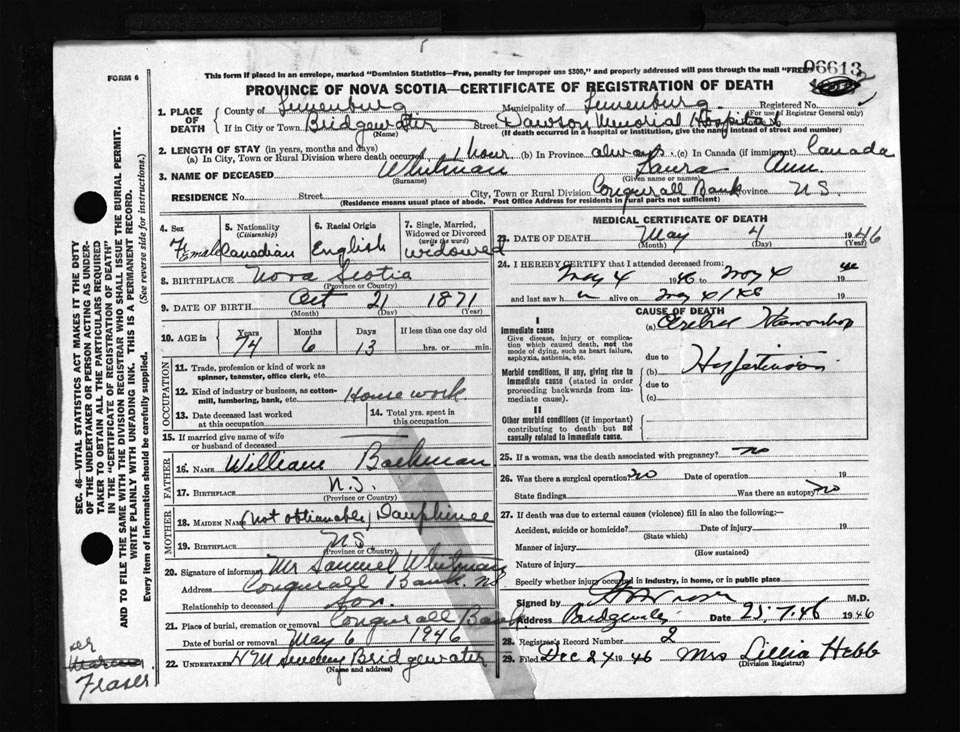 FORM 6
This form if placed in an envelope, marked "Dominion Statistics—Free, penalty for improper use $300," and properly addressed will pass through the mail "FREE"
06613
PROVINCE OF NOVA SCOTIA—CERTIFICATE OF REGISTRATION OF DEATH
1. PLACE OF DEATH County of Lunenburg Municipality of Lunenburg Registered No. (For use of Registrar General only)
If in City or Town Bridgewater (Name) Street Dawson Memorial Hospital
(If death occurred in a hospital or institution, give the name instead of street and number)
2. LENGTH OF STAY (in years, months and days)
(a) In City, Town or Rural Division where death occurred 1 hour (b) In Province always (c) In Canada (if immigrant) Canada
3. NAME OF DECEASED Whitman (Surname) Laura Ann (Given name or names)
RESIDENCE No. Street City, Town or Rural Division Conquerall Bank Province N.S.
(Residence means usual place of abode. Post Office Address for residents in rural parts not sufficient)
4. Sex Female
5. Nationality (Citizenship) Canadian
6. Racial Origin English
7. Single, Married, Widowed or Divorced (write the word) Widowed
8. BIRTHPLACE Nova Scotia
(Province or Country)
9. DATE OF BIRTH Oct 21 1871
(Month) (Day) (Year)
10. AGE in Years Months Days If less than one day old
74 6 13 hrs. or min.
OCCUPATION
11. Trade, profession or kind of work as spinner, teamster, office clerk, etc.
12. Kind of industry or business, as cotton-mill, lumbering, bank, etc. Housework
13. Date deceased last worked at this occupation
14. Total yrs. spent in this occupation
15. If married give name of wife or husband of deceased
FATHER
16. NAME William Backman
17. BIRTHPLACE N.S.
(Province or Country)
MOTHER
18. MAIDEN NAME (Not obtianable) Dauphinee
19. BIRTHPLACE N.S.
(Province or Country)
20. Signature of informant Mr Samuel Whitman
Address Conquerall Bank. N.S.
Relationship to deceased Son.
21. Place of burial, cremation or removal Conquerall Bank
Date of burial or removal May 6 1946
22. UNDERTAKER Bridgewater
(Name and address)
MEDICAL CERTIFICATE OF DEATH
23. DATE OF DEATH May 4 1946
(Month) (Day) (Year)
24. I HEREBY CERTIFY that I attended deceased from:
May 4 1946 to May 4 1946
and last saw h alive on May 4
CAUSE OF DEATH
I
Immediate cause
Give disease, injury or complication which caused death, not the mode of dying, such as heart failure, asphyxia, asthenia, etc.
(a)
due to
Morbid conditions, if any, giving rise to immediate cause (stated in order proceeding backwards from immediate cause).
(b) Hypertension
due to
(c)
II
Other morbid conditions (if important) contributing to death but not causally related to immediate cause.
25. If a woman, was the death associated with pregnancy? no
26. Was there a surgical operation? no Date of operation 19
State findings Was there an autopsy? no
27. If death was due to external causes (violence) fill in also the following:—
Accident, suicide or homicide? Date of injury 19
(State which)
Manner of injury
(How sustained)
Nature of injury
Specify whether injury occurred in industry, in home, or in public place
Signed by M.D.
Address Bridgewater Date 1946
28. Registrar's Record Number 2
29. Filed Dec 24 1946 Mrs Lillia Hebb
(Division Registrar)
SEC. 46—VITAL STATISTICS ACT MAKES IT THE DUTY
OF THE UNDERTAKER OR PERSON ACTING AS UNDER-
TAKER TO OBTAIN ALL THE PARTICULARS REQUIRED
IN THE "CERTIFICATE OF REGISTRATION OF DEATH"
AND TO FILE THE SAME WITH THE DIVISION REGISTRAR WHO SHALL ISSUE THE BURIAL PERMIT.
WRITE PLAINLY WITH UNFADING INK. THIS IS A PERMANENT RECORD.
Every item of information should be carefully supplied. (See reverse side for instructions.)
Fraser